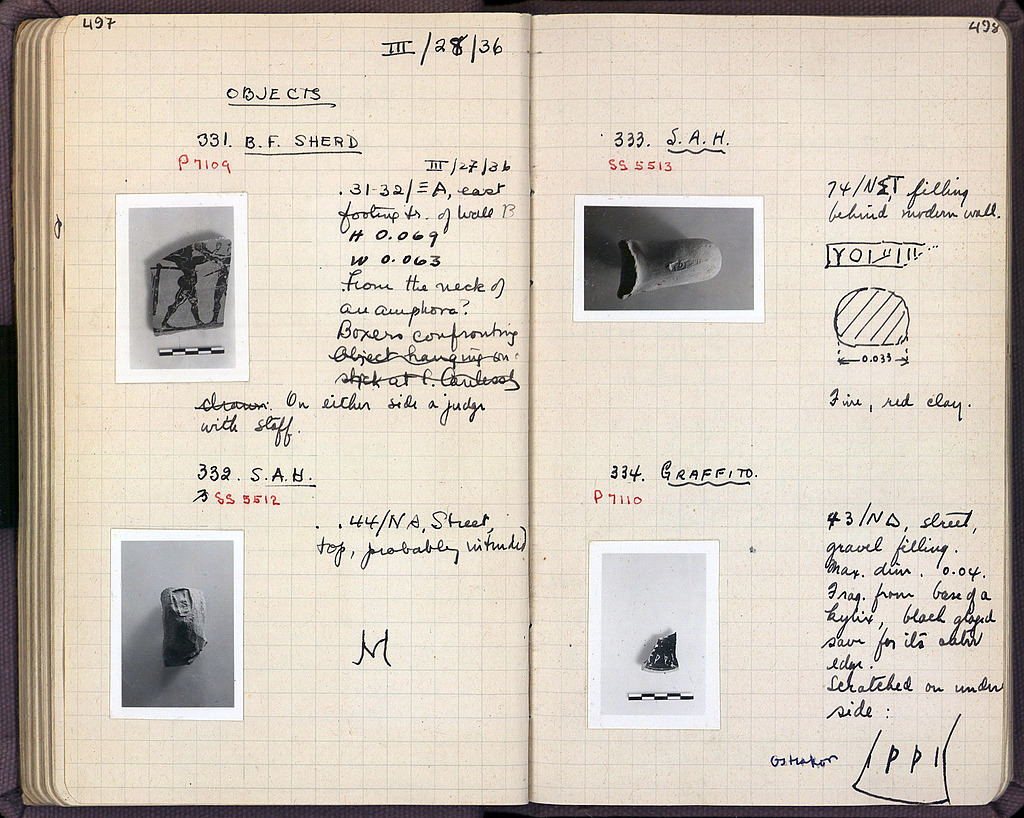 497
III/28/36
OBJECTS
331. B.F. SHERD
P 7109
III/27/36
.31-32/ΞA, east
footing tr. of wall B
H 0.069
W 0.063
From the neck of
an amphora?
Boxers confronting
Object hanging on
stick at l. Carelessly
drawn. On either side a judge
with staff.
332. S.A.H.
SS 5512
.44/NΔ, Street,
top, probably intruded
M
498
333. S.A.H.
SS 5513
74/N, filling
behind modern wall.
0.033
Fine, red clay.
334. GRAFFITO.
P 7110
43/NΔ, street,
gravel filling.
Max. dim. 0.04.
Frag. from base of a
kylix, black glazed
save for its outer
edge.
Scratched on under
side:
Ostrakon